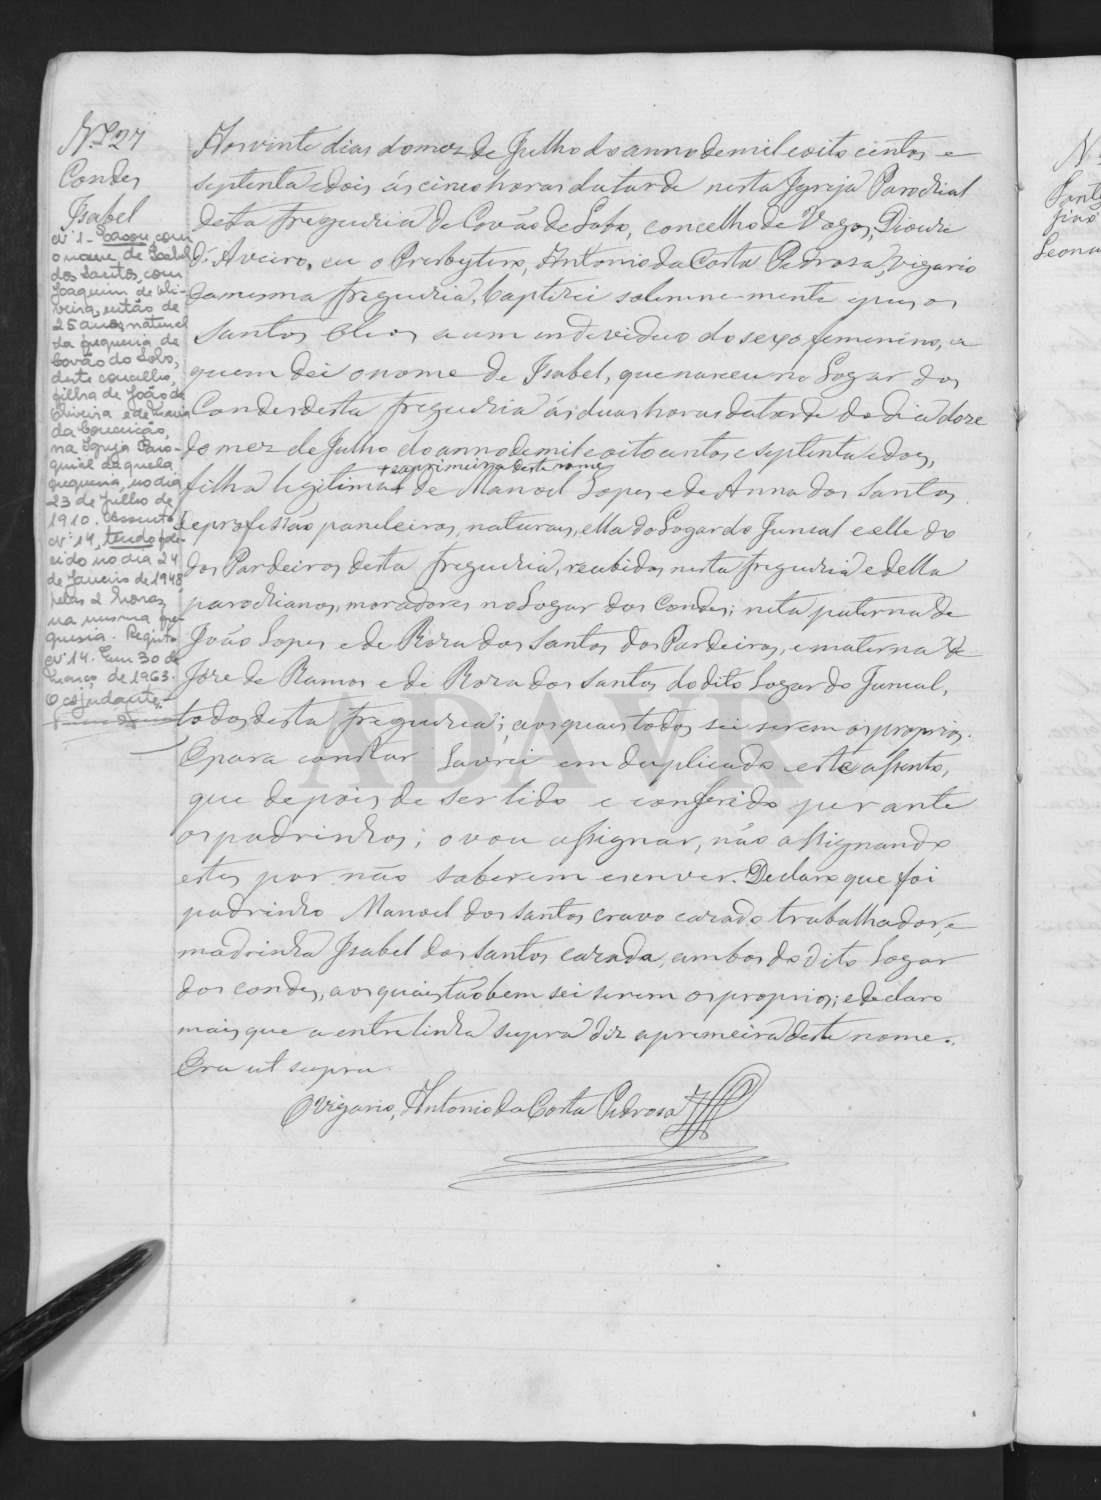 N.º 27
Condes
Isabel
Nº 1 - Casou com
o nome de Isabel
dos Santos, com
Joaquim de Oli-
veira, então de
25 anos, natural
da freguesia de
Covão do Lobo,
deste concelho,
filho de João de
Oliveira e de Maria
da Conceição,
na Igreja Paro-
quial daquela
freguesia, no dia
23 de Julho de
1910. Assento
nº 14, tendo fale-
cido no dia 24
de Janeiro de 1948
pelas 2 horas,
na mesma fre-
guesia. Registo
nº 14. Em 30 de
Março de 1963.
O ajudante,
Aos vinte dias do mez de Julho do anno de mil e oito centos e
septenta e dois ás cinco horas da tarde nesta Igreja Parochial
desta freguezia de Covão de Lobo, concelho de Vagos, Diocese
d'Aveiro, eu o Presbytero, Antonio da Costa Pedrosa, Vigario
da mesma freguezia, baptizei solemne-mente e puz os
Santos Oleos a um individuo do sexo femenino, a
quem dei o nome de Isabel, que nasceu no Logar dos
Condes desta freguezia ás duas horas da tarde do dia doze
do mez de Julho do anno de mil e oito centos e septenta e dois,
+ e a primeira deste nome
filha legitima + de Manoel Lopes e de Anna dos Santos
de profissão paneleiros, naturaes, ella do Logar do Juncal e elle do
dos Pardeiros desta freguezia, recebidos nesta freguezia e della
parochianos, moradores no Logar dos Condes; neta paterna de
João Lopes e de Roza dos Santos dos Pardeiros, e materna de
Joze de Ramos e de Roza dos Santos do dito Logar do Juncal,
todos desta freguezia; aos quaes todos sei serem os proprios.
E para constar lavrei em duplicado este assento,
que depois de ser lido e conferido perante
os padrinhos; o vou assignar, não assignando
estes por não saberem escrever. Declaro que foi
padrinho Manoel dos Santos Cravo cazado trabalhador, e
madrinha Isabel dos Santos cazada, ambos do dito Logar
dos Condes, aos quaes tãobem sei serem os proprios; e declaro
mais que a entrelinha supra diz a premeira deste nome.
Era ut supra
O Vigario, Antonio da Costa Pedrosa
ADAVR